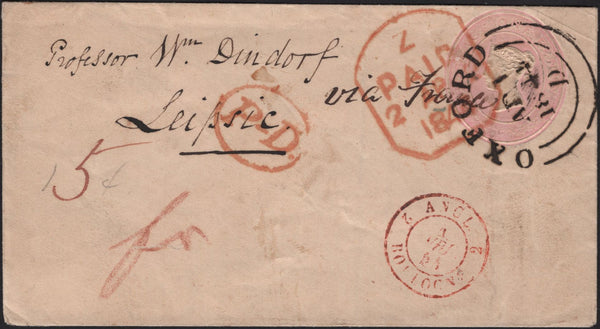 Professor Wm Dindorf
via France
Leipsic
5
fr
P.D.
Z
PAID
OXFORD
2 ANGL. 2
BOULOGNE